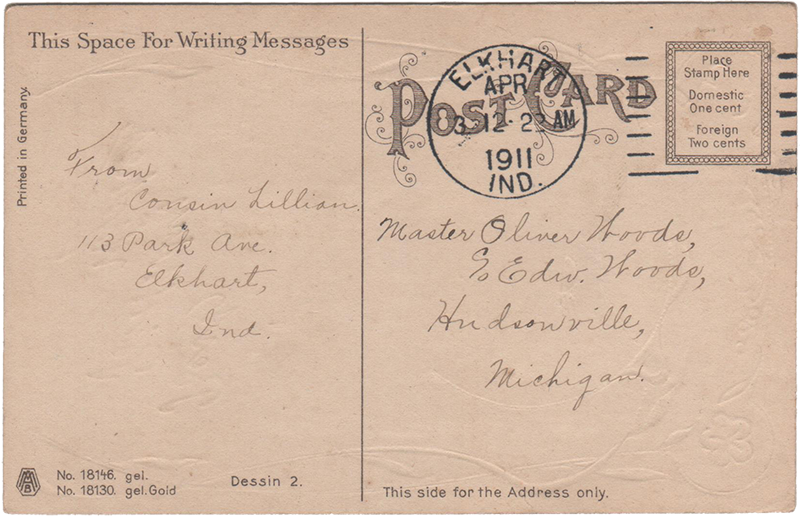 This Space For Writing Messages
POST CARD
ELKHART
APR
3 12-2 AM
1911
IND.
Place
Stamp Here
Domestic
One cent
Foreign
Two cents
Printed in Germany.
From
Cousin Lillian.
113 Park Ave.
Elkhart,
Ind.
Master Oliver Woods,
℅ Edw. Woods,
Hudsonville,
Michigan.
No. 18146. gel.
No. 18130. gel.Gold
Dessin 2.
This side for the Address only.